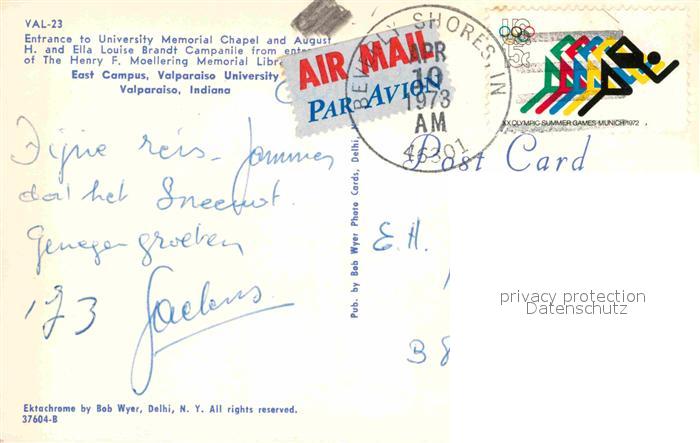 VAL-23
Entrance to University Memorial Chapel and August
H. and Ella Louise Brandt Campanile from ent
of The Henry F. Moellering Memorial Libr
East Campus, Valparaiso University
Valparaiso, Indiana
AIR MAIL
PAR AVION
BEVERLY SHORES, IN
APR
10
1973
AM
46301
US
15c
XX OLYMPIC SUMMER GAMES·MUNICH 1972
Post Card
Fijne reis. Jammer
dat het Sneeuwt.
Genegen groeten
'73
Pub. by Bob Wyer Photo Cards, Delhi, N
E.H.
B 8
privacy protection
Datenschutz
Ektachrome by Bob Wyer, Delhi, N. Y. All rights reserved.
37604-B